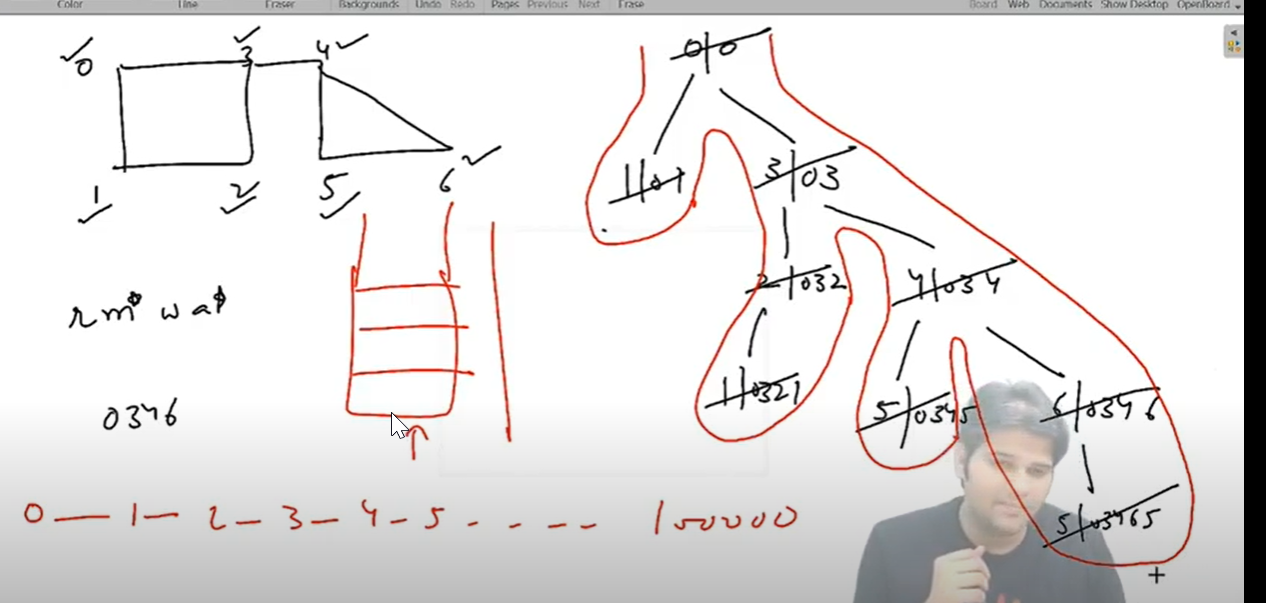 Color Line Eraser Backgrounds Undo Redo Pages Previous Next Erase Board Web Documents Show Desktop OpenBoard
0 3 4
1 2 5 6
0|0
1|01 3|03
2|032 4|034
1|0321 5|0345 6|0346
5|03465
r m* w a*
0346
0 — 1 — 2 — 3 — 4 — 5 - - - - 100000